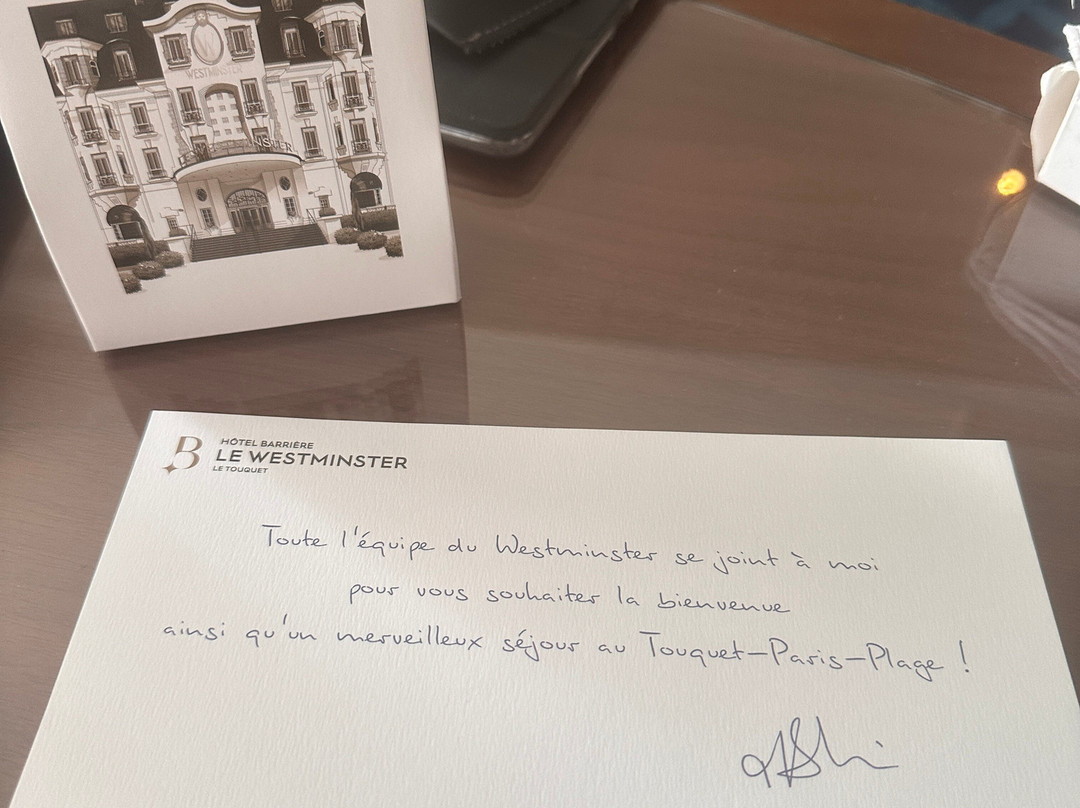 W
WESTMINSTER
HÔTEL BARRIÈRE
LE WESTMINSTER
LE TOUQUET
Toute l'équipe du Westminster se joint à moi
pour vous souhaiter la bienvenue
ainsi qu'un merveilleux séjour au Touquet-Paris-Plage !